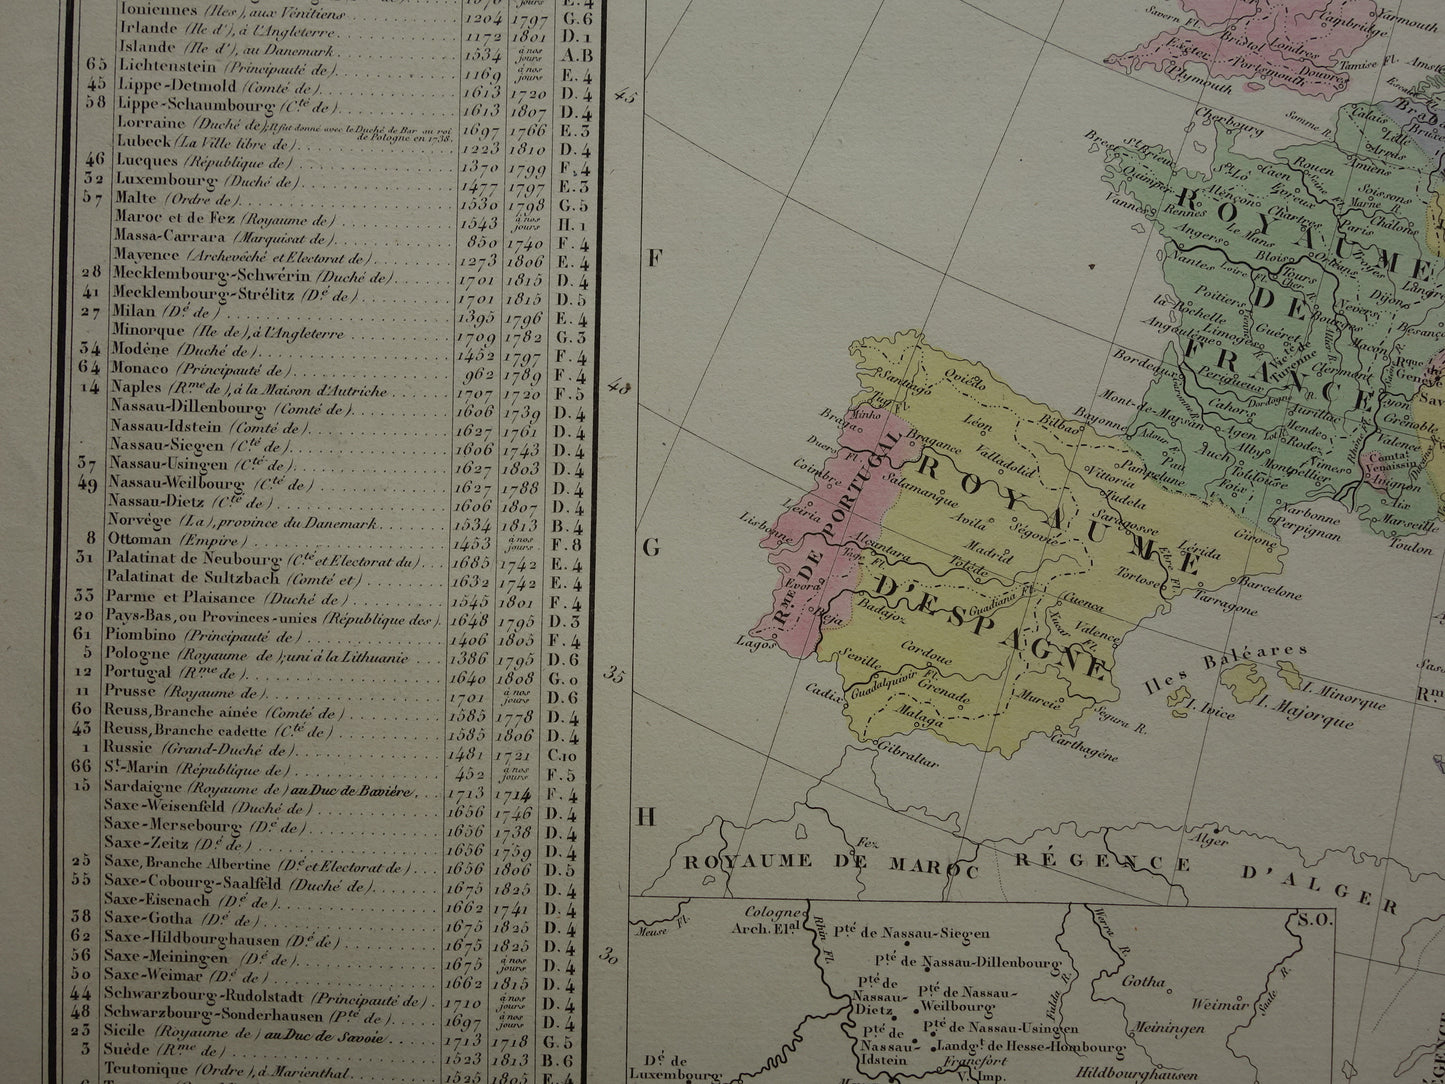 Ioniennes (Iles), aux Vénitiens 1204 1797 G.6
Irlande (Ile d'), à l'Angleterre 1172 1801 D.1
Islande (Ile d'), au Danemark 1534 à nos jours A.B
65 Lichtenstein (Principauté de) 1169 à nos jours E.4
45 Lippe-Detmold (Comté de) 1613 1720 D.4
58 Lippe-Schaumbourg (Cté de) 1613 1807 D.4
Lorraine (Duché de); Il fut donné avec le Duché de Bar au roi de Pologne en 1738. 1697 1766 E.3
Lubeck (La Ville libre de) 1223 1810 D.4
46 Lucques (République de) 1370 1799 F.4
32 Luxembourg (Duché de) 1477 1797 E.3
57 Malte (Ordre de) 1530 1798 G.5
Maroc et de Fez (Royaume de) 1543 à nos jours H.1
Massa-Carrara (Marquisat de) 850 1740 F.4
Mayence (Archevêché et Electorat de) 1273 1806 E.4
28 Mecklembourg-Schwérin (Duché de) 1701 1815 D.4
41 Mecklembourg-Strélitz (D.é de) 1701 1815 D.5
27 Milan (D.é de) 1395 1796 E.4
Minorque (Ile de), à l'Angleterre 1709 1782 G.3
34 Modène (Duché de) 1452 1797 F.4
64 Monaco (Principauté de) 962 1789 F.4
14 Naples (Rme de), à la Maison d'Autriche 1707 1720 F.5
Nassau-Dillenbourg (Comté de) 1606 1739 D.4
Nassau-Idstein (Comté de) 1627 1761 D.4
Nassau-Siegen (Cté de) 1606 1743 D.4
37 Nassau-Usingen (Cté de) 1627 1803 D.4
49 Nassau-Weilbourg (Cté de) 1627 1788 D.4
Nassau-Dietz (Cté de) 1606 1807 D.4
Norvége (La), province du Danemark 1534 1813 B.4
8 Ottoman (Empire) 1453 à nos jours F.8
31 Palatinat de Neubourg (Cté et Electorat du) 1685 1742 E.4
Palatinat de Sultzbach (Comté et) 1632 1742 E.4
33 Parme et Plaisance (Duché de) 1545 1801 F.4
20 Pays-Bas, ou Provinces-unies (République des) 1648 1795 D.3
61 Piombino (Principauté de) 1406 1805 F.4
5 Pologne (Royaume de); uni à la Lithuanie 1386 1795 D.6
12 Portugal (Rme de) 1640 1808 G.0
11 Prusse (Royaume de) 1701 à nos jours D.6
60 Reuss, Branche aînée (Comté de) 1585 1778 D.4
43 Reuss, Branche cadette (Cté de) 1585 1806 D.4
1 Russie (Grand-Duché de) 1481 1721 C.10
66 St-Marin (République de) 452 à nos jours F.5
15 Sardaigne (Royaume de) au Duc de Bavière 1713 1714 F.4
Saxe-Weisenfeld (Duché de) 1656 1746 D.4
Saxe-Mersebourg (D.é de) 1656 1738 D.4
Saxe-Zeitz (D.é de) 1656 1759 D.4
25 Saxe, Branche Albertine (D.é et Electorat de) 1656 1806 D.5
55 Saxe-Cobourg-Saalfeld (Duché de) 1675 1825 D.4
Saxe-Eisenach (D.é de) 1662 1741 D.4
38 Saxe-Gotha (D.é de) 1675 1825 D.4
62 Saxe-Hildbourghausen (D.é de) 1675 1825 D.4
56 Saxe-Meiningen (D.é de) 1675 à nos jours D.4
50 Saxe-Weimar (D.é de) 1662 1815 D.4
44 Schwarzbourg-Rudolstadt (Principauté de) 1710 à nos jours D.4
48 Schwarzbourg-Sonderhausen (Pté de) 1697 à nos jours D.4
23 Sicile (Royaume de) au Duc de Savoie 1713 1718 G.5
3 Suède (Rme de) 1523 1813 B.6
Teutonique (Ordre), à Marienthal 1525 1805 E.4
45
F
40
G
35
H
30
Yarmouth
Cambridge
Savern Fl.
Bristol
Londres
Exeter
Portsmouth
Douvres
Tamise Fl.
Plymouth
Cherbourg
Somme R.
Calais
Lille
Arras
Brest
St Brieuc
St Lô
Caen
Rouen
Amiens
Quimper
Alençon
Evreux
Seine Fl.
Soissons
Marne R.
Vannes
Rennes
Chartres
Paris
Châlons
ROYAUME
DE
FRANCE
Angers
Le Mans
Orléans
Troyes
Nantes
Loire Fl.
Blois
Tours
Cher R.
Dijon
Poitiers
Bourges
Nevers
la Rochelle
Angoulême
Limoges
Guéret
Macon
Bordeaux
Perigueux
Clermont
Lyon
Mont-de-Marsan
Cahors
Dordogne R.
Aurillac
Grenoble
Bayonne
Adour R.
Agen
Lot R.
Rodez
Mende
Valence
Pau
Auch
Alby
Montpellier
Nimes
Comtat Venaissin
Avignon
Toulouse
Foix
Aix
Marseille
Toulon
Narbonne
Perpignan
Santiago
Oviedo
Tuy
Minho Fl.
Braga
Léon
Bilbao
Duero Fl.
Bragance
Valladolid
Vittoria
Pampelune
Coimbre
Salamanque
Tudela
Saragosse
Leiria
Avila
Ségovie
Lérida
Girone
Lisbonne
Alcantara
Madrid
Tage Fl.
Tolède
Tortose
Ebre Fl.
Barcelone
Tarragone
Evora
Badajoz
Guadiana Fl.
Cuenca
Xucar Fl.
Valence
Beja
Lagos
Rme DE PORTUGAL
ROYAUME
D'ESPAGNE
Seville
Cordoue
Cadix
Guadalquivir Fl.
Grenade
Murcie
Malaga
Segura R.
Carthagène
Gibraltar
Iles Baléares
I. Ivice
I. Majorque
I. Minorque
Alger
Fez
ROYAUME DE MAROC
RÉGENCE D'ALGER
S.O.
Meuse Fl.
Cologne
Arch. Elal
Rhin Fl.
Pté de Nassau-Siegen
Pté de Nassau-Dillenbourg
Pté de Nassau-Dietz
Pté de Nassau-Weilbourg
Pté de Nassau-Idstein
Pté de Nassau-Usingen
Landgt de Hesse-Hombourg
Francfort
V. Imp.
D.é de Luxembourg
Werra R.
Fulda R.
Gotha
Weimar
Saale R.
Meiningen
Hildbourghausen